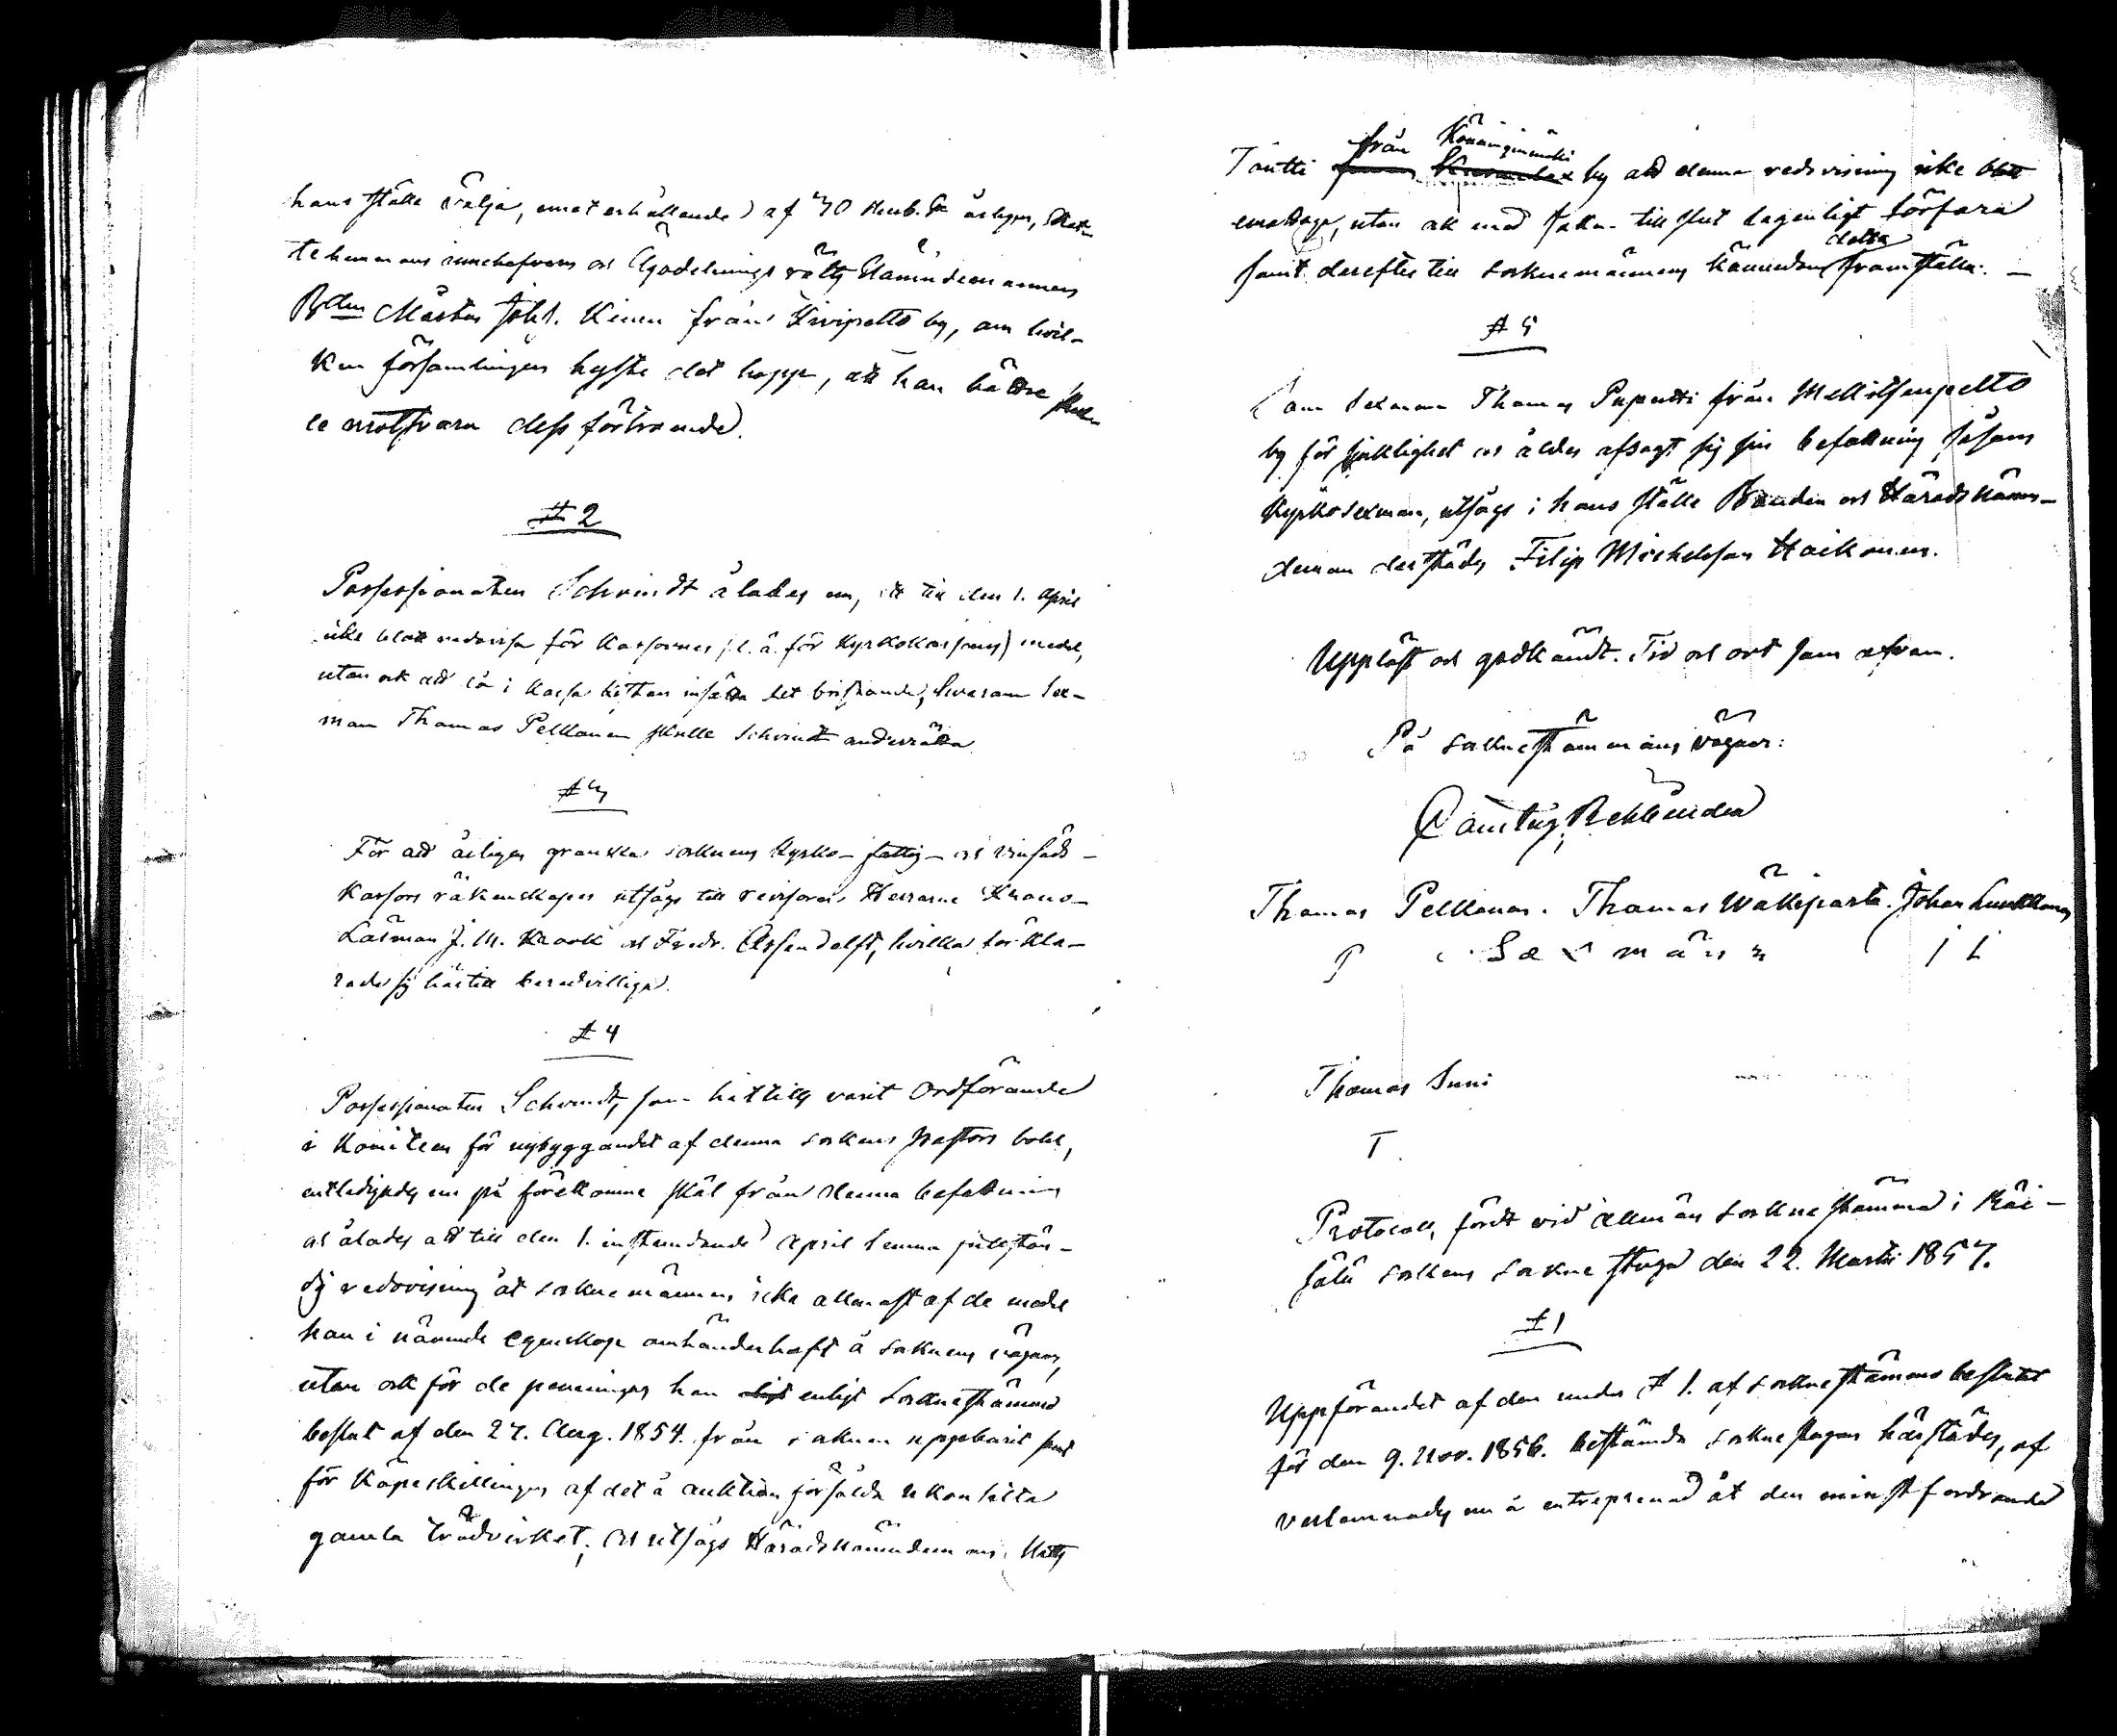 hans ställe välja, emot erhållande af 40 Rub. Sr årligen, Skat-
tehemmans innehafvaren och Ägodelnings rätts Nämndemannen
Bdn Mårten Joh:s. Kinen från Kivipelto by, om hvil-
ken församlingen hyste det hopp, att han bättre skul-
le motsvara dess förtroende.
# 2
Possessionaten Schvindt ålades nu, att till den 1. April
icke blott redovisa för Kassornes (l. ä. för Kyrkokassans) medel,
utan ock att då i Kassa kistan insätta det bristande, hvarom Sex-
man Thomas Pelkonen skulle Schvindt underrätta.
# 3
För att årligen granska socknens Kyrko- fattig- och vinsäds-
kassors räkenskaper utsågs till revisorer Herrarne Krono-
Länsman J. M. Krook och Fredr. Assendelft, hvilka förkla-
rade sig härtill beredvilliga.
# 4
Possessionaten Schvindt, som hittills varit Ordförande
i Komiteen för nybyggandet af denna sockens pastors bohl,
entledigades nu på förekomne skäl från denna befattning
och ålades att till den 1. instundande April lemna fullstän-
dig redovisning åt sockne männen icke allenast af de medel
han i nämnde egenskap omhänderhaft å socknens vägnar,
utan ock för de penningar han enligt Sockneskämmo
beslut af den 27. Aug. 1854. från socknen uppburit samt
för köpeskillingen af det å auktion försålda
gamla trädvirket; och utsågs Häradsnämndemannen Matts
Täntti från Könninginmäki by att denna redovisning icke blott
emottaga, utan ock med saken till slut lagenligt förfara
samt derefter till socknemännens kännedom detta framställa. —
# 5
som Sexman Thomas Puputti från Mellilsenpelto
by för sjuklighet och ålder afsagt sig sin befattning såsom
Kyrkosexman, utsågs i hans ställe Bonden och Häradsnämn-
deman derstädes Filip Michelsson Haikonen.
Uppläst och godkändt. Tid och ort som ofvan.
På sockneskämmans vägnar:
Thomas Pelkonen. Thomas Wäkiparta. Johan Lunkkonen
Sexmän
Thomas Suni
T.
Protocoll, fördt vid allmän sockneskämma i Räi-
sälä sockens sockne stuga den 22. Martii 1857.
# 1
Uppförandet af den under # 1. af sockneskämmo beslutet
för den 9. Nov. 1856. bestämda sockne stugan härstädes, öf
verlemnades nu å entreprenad åt den minst fordrande